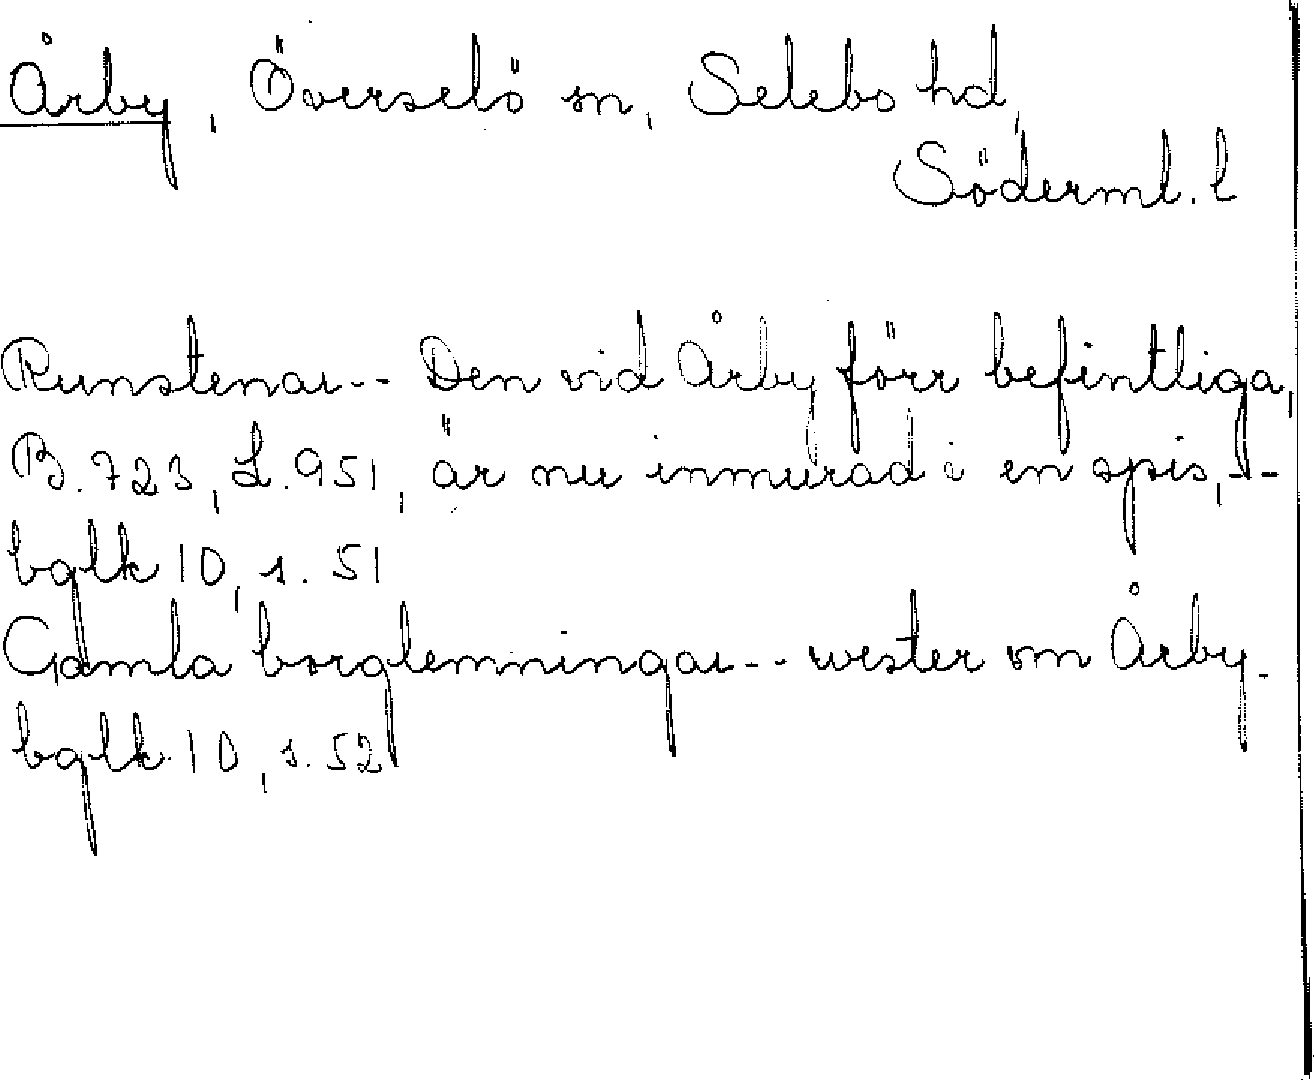 Årby, Överselö sn, Selebo hd,
Söderml. l
Runstenar-- Den vid Årby förr befintliga,
B. 723, L. 951, är nu inmurad i en spis,--
bglk 10, s. 51
Gamla borglemningar-- wester om Årby.
bglk 10, s. 52